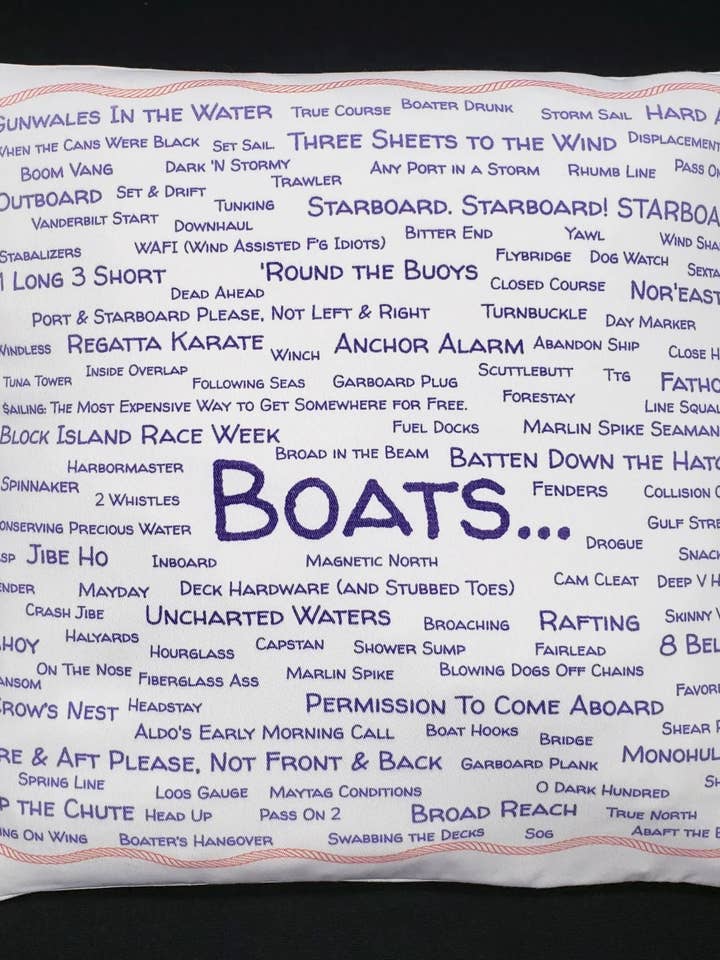 GUNWALES IN THE WATER TRUE COURSE BOATER DRUNK STORM SAIL HARD
WHEN THE CANS WERE BLACK SET SAIL THREE SHEETS TO THE WIND DISPLACEMENT
BOOM VANG DARK 'N STORMY ANY PORT IN A STORM RHUMB LINE PASS
TRAWLER
OUTBOARD SET & DRIFT TUNKING STARBOARD. STARBOARD! STARBOA
VANDERBILT START DOWNHAUL
STABALIZERS WAFI (WIND ASSISTED F'G IDIOTS) BITTER END YAWL WIND SHA
1 LONG 3 SHORT 'ROUND THE BUOYS FLYBRIDGE DOG WATCH SEXTA
DEAD AHEAD CLOSED COURSE NOR'EAST
PORT & STARBOARD PLEASE, NOT LEFT & RIGHT TURNBUCKLE DAY MARKER
WINDLESS REGATTA KARATE WINCH ANCHOR ALARM ABANDON SHIP CLOSE H
TUNA TOWER INSIDE OVERLAP FOLLOWING SEAS GARBOARD PLUG SCUTTLEBUTT TTG FATHO
SAILING: THE MOST EXPENSIVE WAY TO GET SOMEWHERE FOR FREE. FORESTAY LINE SQUAL
BLOCK ISLAND RACE WEEK FUEL DOCKS MARLIN SPIKE SEAMAN
HARBORMASTER BROAD IN THE BEAM BATTEN DOWN THE HATC
SPINNAKER 2 WHISTLES BOATS... FENDERS COLLISION
ONSERVING PRECIOUS WATER DROGUE GULF STRE
SP JIBE HO INBOARD MAGNETIC NORTH SNACK
ENDER MAYDAY DECK HARDWARE (AND STUBBED TOES) CAM CLEAT DEEP V H
CRASH JIBE UNCHARTED WATERS BROACHING RAFTING SKINNY
HOY HALYARDS HOURGLASS CAPSTAN SHOWER SUMP FAIRLEAD 8 BEL
ANSOM ON THE NOSE FIBERGLASS ASS MARLIN SPIKE BLOWING DOGS OFF CHAINS
FAVOR
CROW'S NEST HEADSTAY PERMISSION TO COME ABOARD
ALDO'S EARLY MORNING CALL BOAT HOOKS BRIDGE SHEAR
RE & AFT PLEASE, NOT FRONT & BACK GARBOARD PLANK MONOHUL
SPRING LINE LOOS GAUGE MAYTAG CONDITIONS O DARK HUNDRED
P THE CHUTE HEAD UP PASS ON 2 BROAD REACH TRUE NORTH
ING ON WING BOATER'S HANGOVER SWABBING THE DECKS SOG ABAFT THE